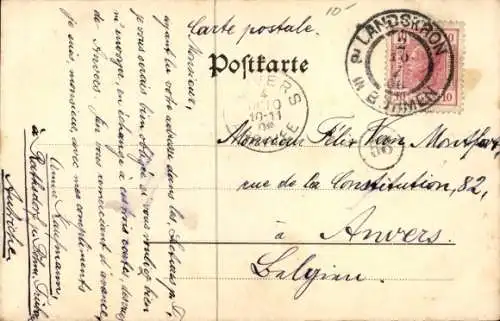 10-
Carte postale.
Postkarte
LANDSKRON
IN BÖHMEN
10
10
Monsieur Félix Van Montfort,
rue de la Constitution, 82,
à Anvers.
Belgien.
Monsieur,
ayant lu votre adresse dans les
je vous serais bien obligée si vous vouliez bien
m'envoyer, en échange à cette carte,
de Anvers. En vous remerciant d'avance,
je suis, monsieur, avec mes compliments
Anna Kaufmann,
à Rathsdorf,
Autriche.